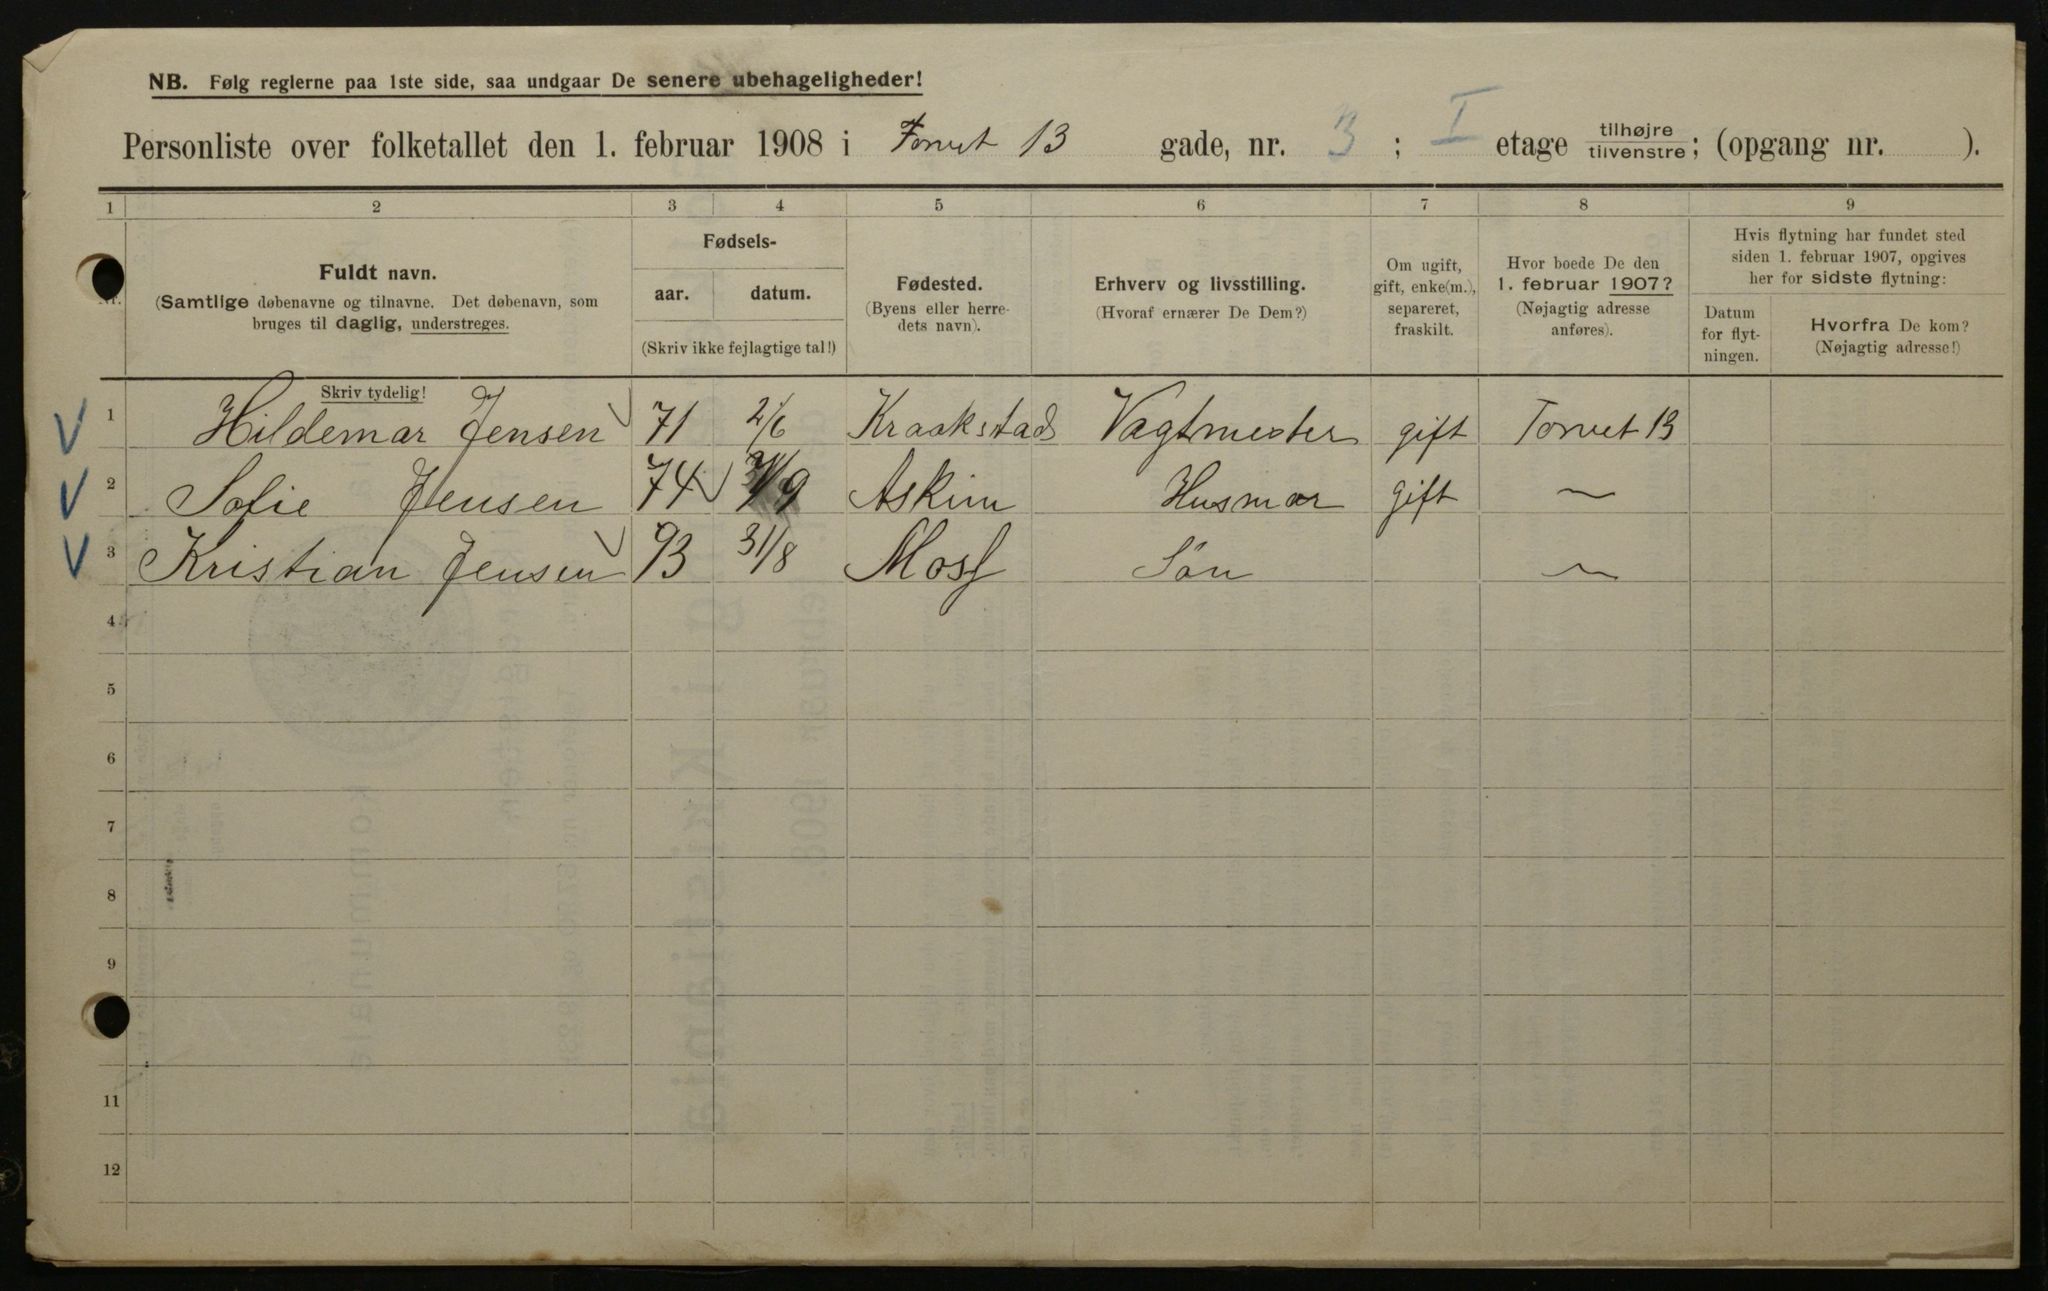 NB. Følg reglerne paa 1ste side, saa undgaar De senere ubehageligheder!
Personliste over folketallet den 1. februar 1908 i Torvet 13 gade, nr. 3; I etage tilhøjre tilvenstre; (opgang nr. ).
1 2 3 4 5 6 7 8 9
Nr.
Fuldt navn.
(Samtlige døbenavne og tilnavne. Det døbenavn, som
bruges til daglig, understreges.
Skriv tydelig!
Fødsels-
aar. datum.
(Skriv ikke fejlagtige tal!)
Fødested.
(Byens eller herre-
dets navn).
Erhverv og livsstilling.
(Hvoraf ernærer De Dem?)
Om ugift,
gift, enke(m.),
separeret,
fraskilt.
Hvor boede De den
1. februar 1907?
(Nøjagtig adresse
anføres).
Hvis flytning har fundet sted
siden 1. februar 1907, opgives
her for sidste flytning:
Datum
for flyt-
ningen.
Hvorfra De kom?
(Nøjagtig adresse!)
1 Hildemar Jensen 71 2/6 Kraakstad Vagtmester gift Torvet 13
2 Sofie Jensen 74 9 Askim Husmor gift —
3 Kristian Jensen 93 31/8 Moss Søn —
4
5
6
7
8
9
11
12